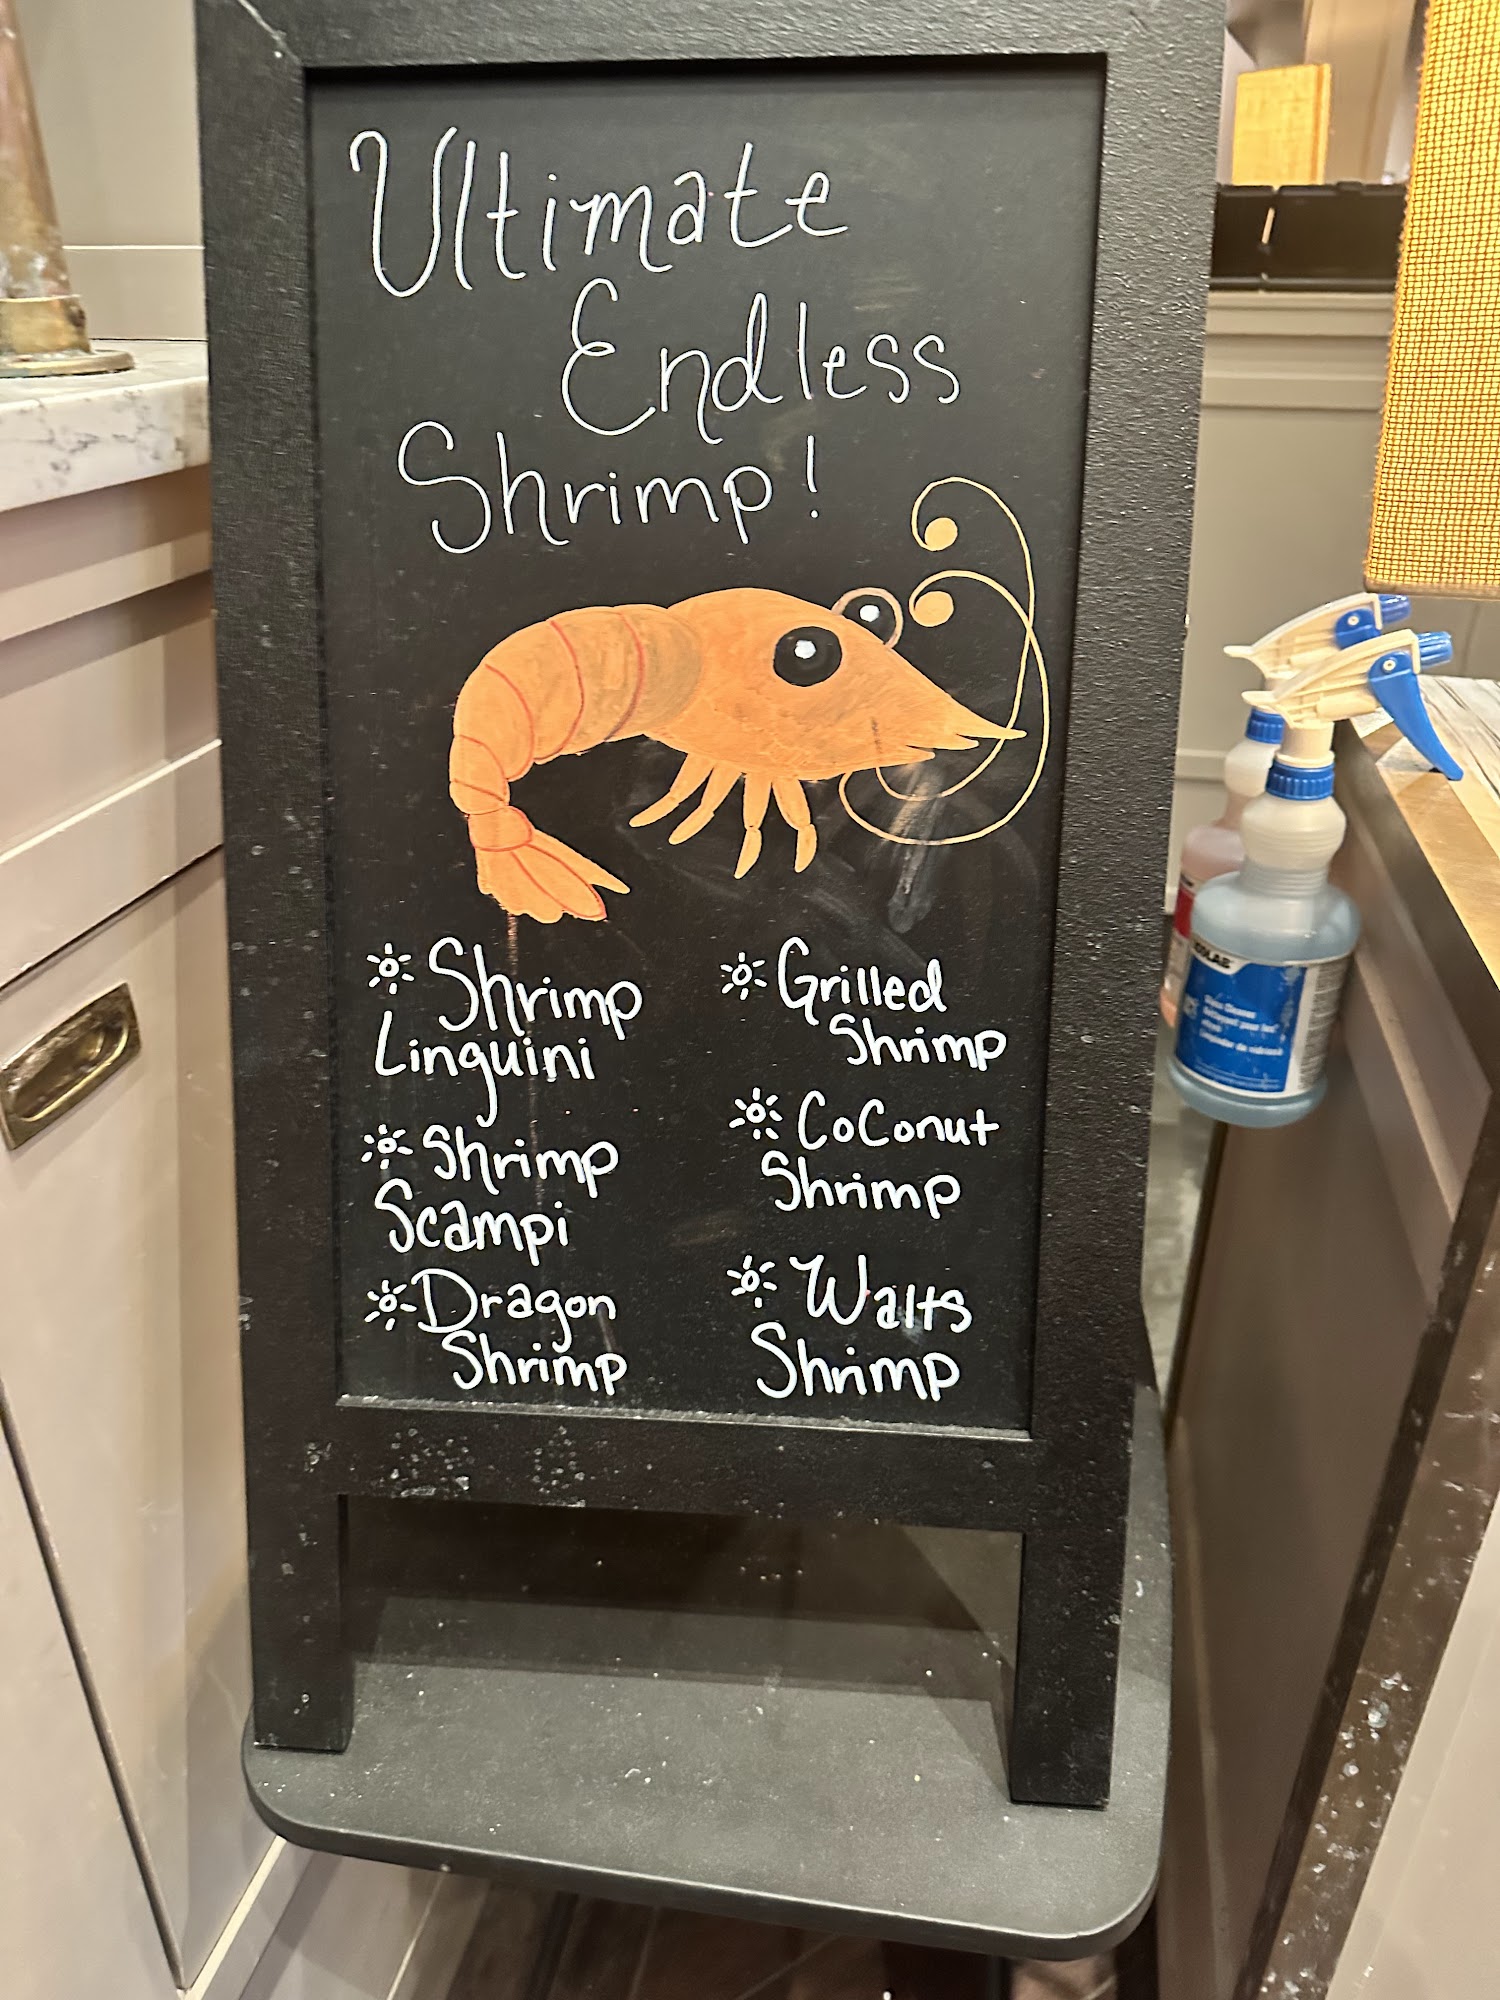 Ultimate
Endless
Shrimp!
Shrimp
Linguini
Shrimp
Scampi
Dragon
Shrimp
Grilled
Shrimp
CoConut
Shrimp
Walts
Shrimp
ECOLAB